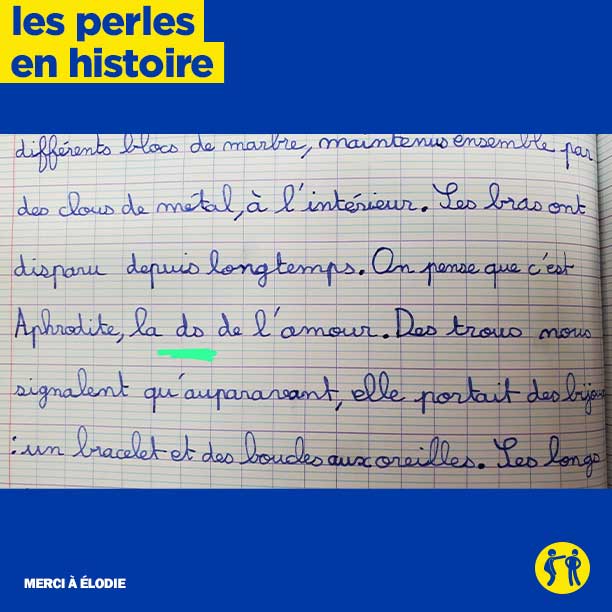 les perles
en histoire
différents blocs de marbre, maintenus ensemble par
des clous de métal, à l'intérieur. Ses bras ont
disparu depuis longtemps. On pense que c'est
Aphrodite, la ds de l'amour. Des trous nous
signalent qu'auparavant, elle portait des bijoux
: un bracelet et des boucles aux oreilles. Ses longs
MERCI À ÉLODIE